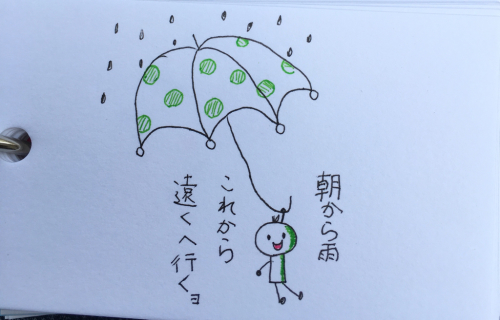 朝から雨
これから
遠くへ行くヨ